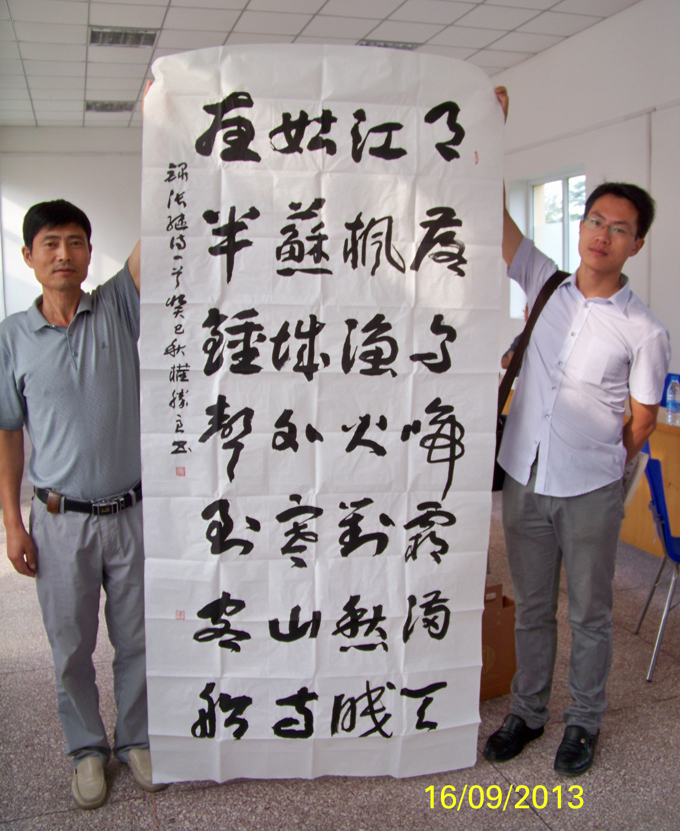 月落乌啼霜满天
江楓漁火對愁眠
姑蘇城外寒山寺
夜半鍾聲到客船
録张继诗一首癸巳秋
16/09/2013